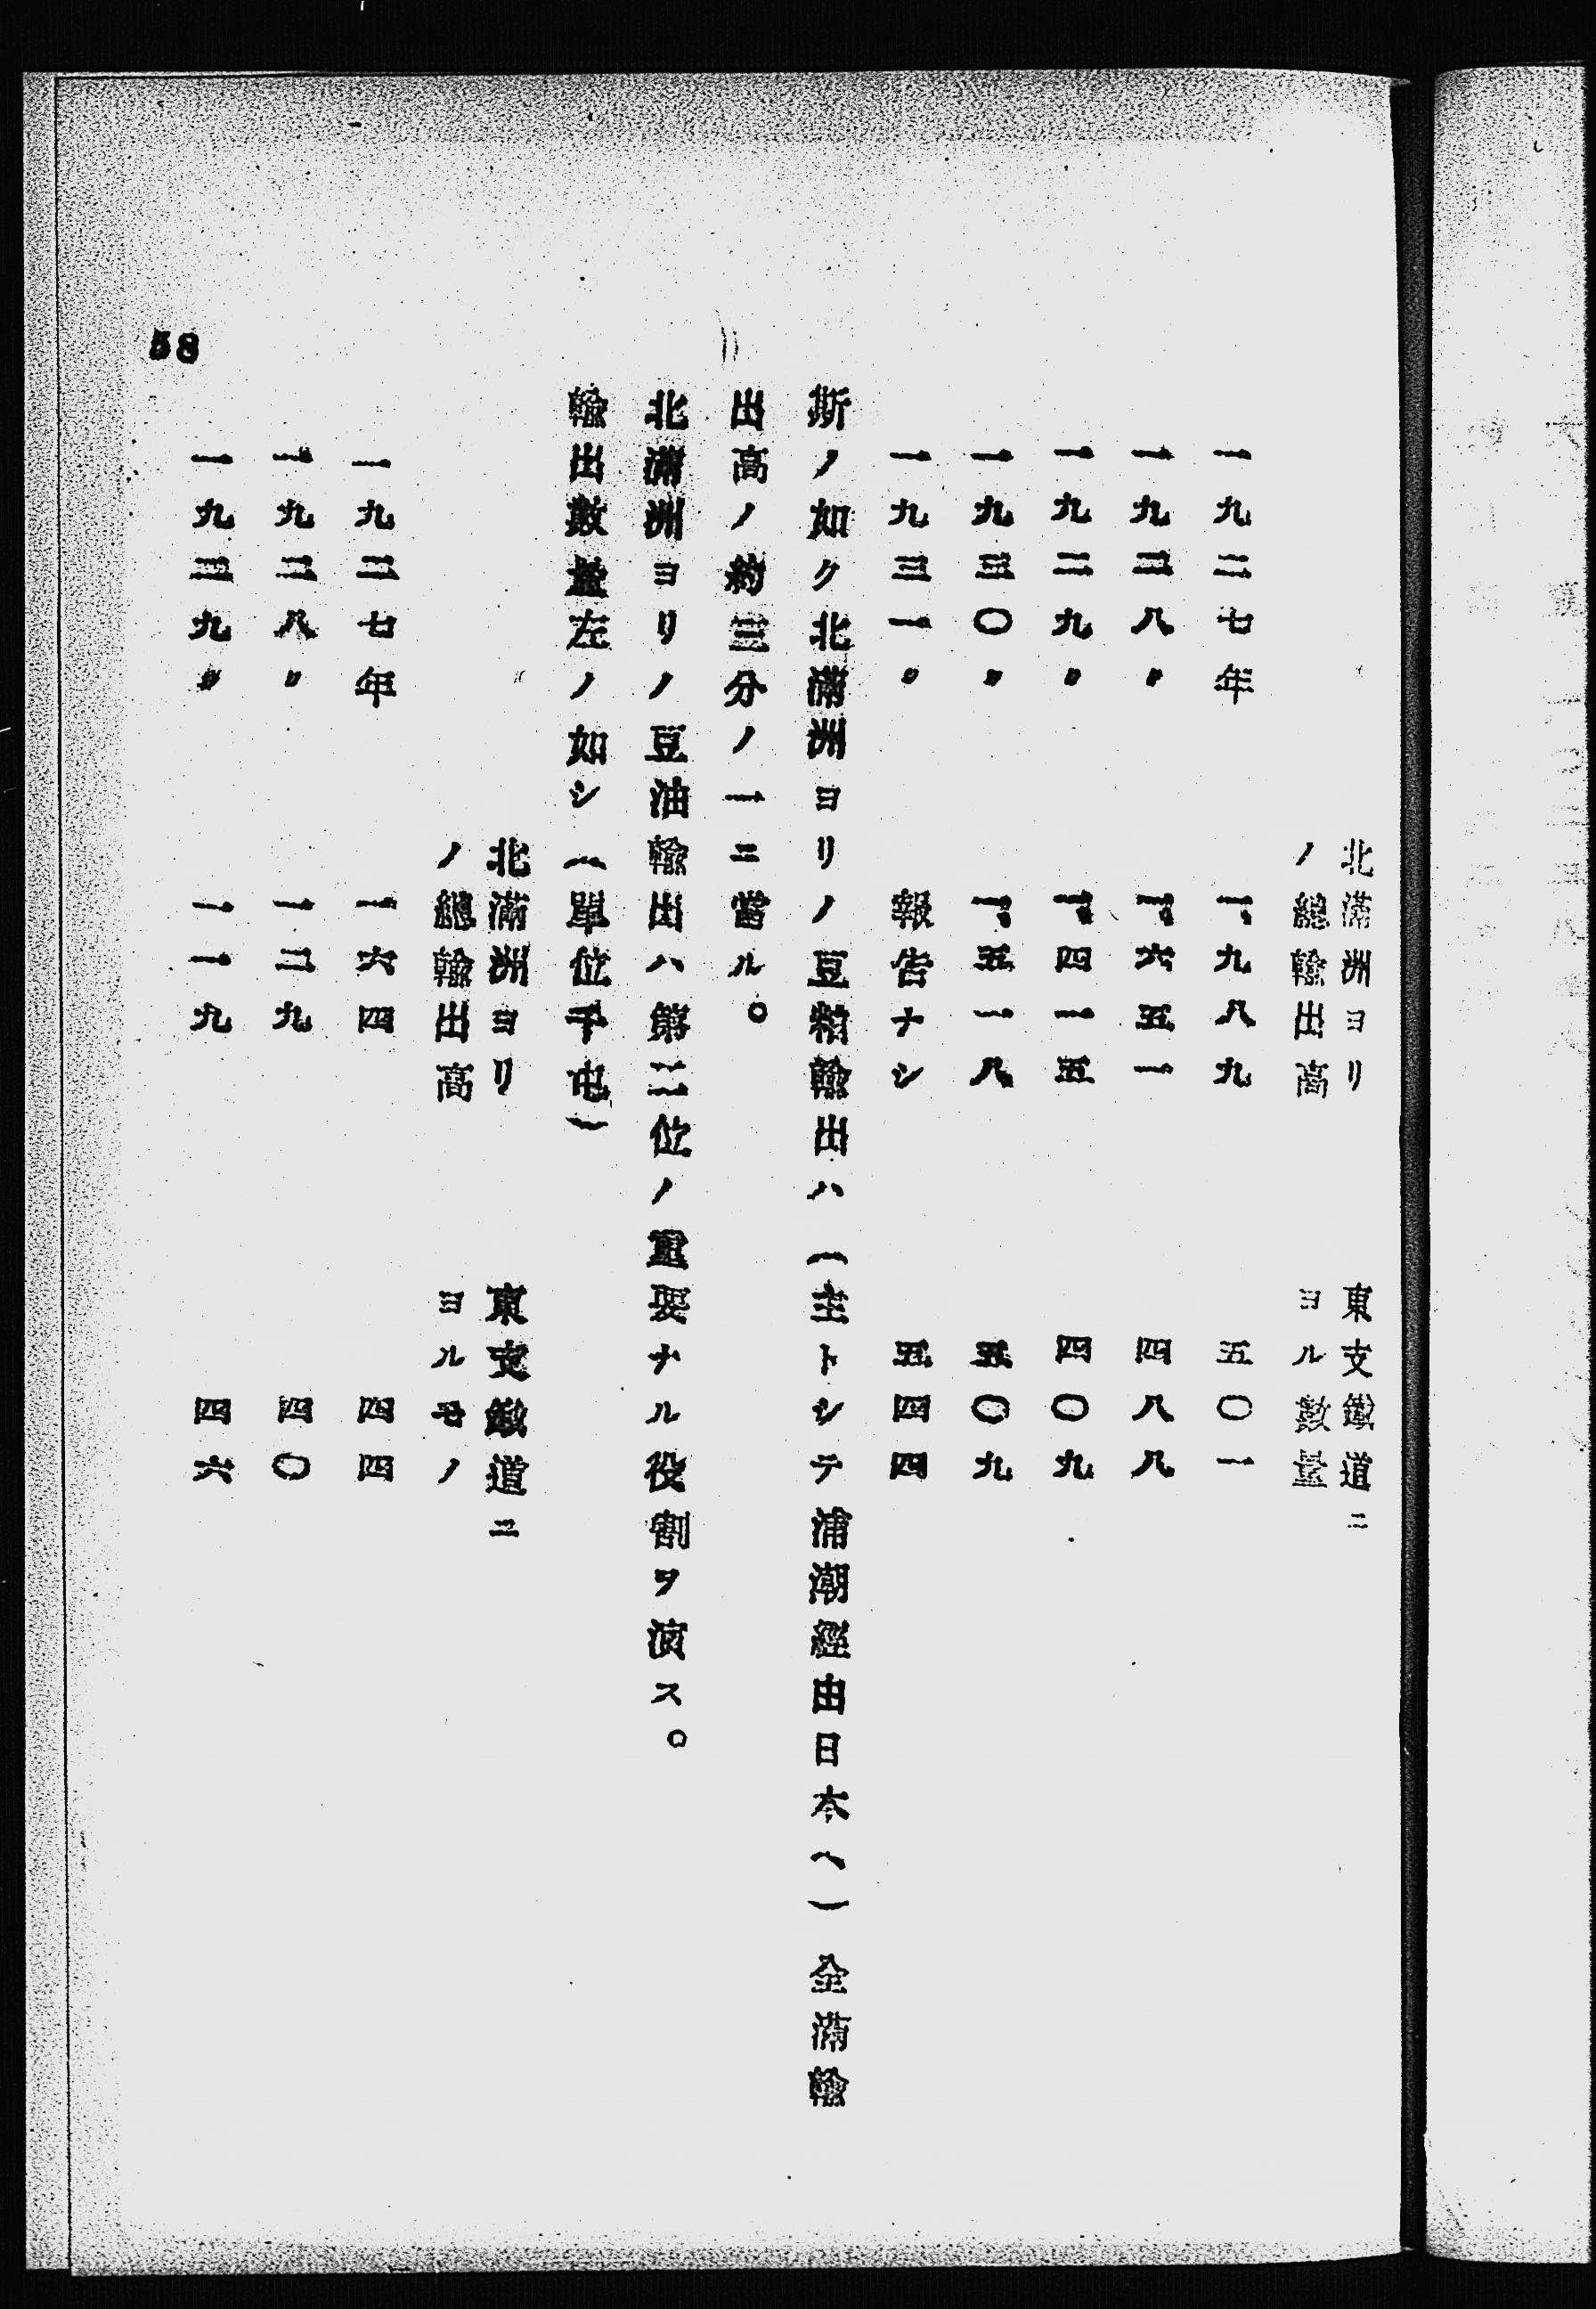 北滿洲ヨリ 東支鐵道ニ
ノ總輸出高 ヨル數量
一九二七年 一、九八九 五〇一
一九二八〃 一、六五一 四八八
一九二九〃 一、四一五 四〇九
一九三〇〃 一、五一八 五〇九
一九三一〃 報告ナシ 五四四
斯ノ如ク北滿洲ヨリノ豆粕輸出ハ(主トシテ浦潮經由日本ヘ)全滿輸
出高ノ約三分ノ一ニ當ル。
北滿洲ヨリノ豆油輸出ハ第二位ノ重要ナル役割ヲ演ス。
輸出數量左ノ如シ(單位千屯)
北滿洲ヨリ 東支鐵道ニ
ノ總輸出高 ヨルモノ
一九二七年 一六四 四四
一九二八〃 一二九 四〇
一九二九〃 一一九 四六
58